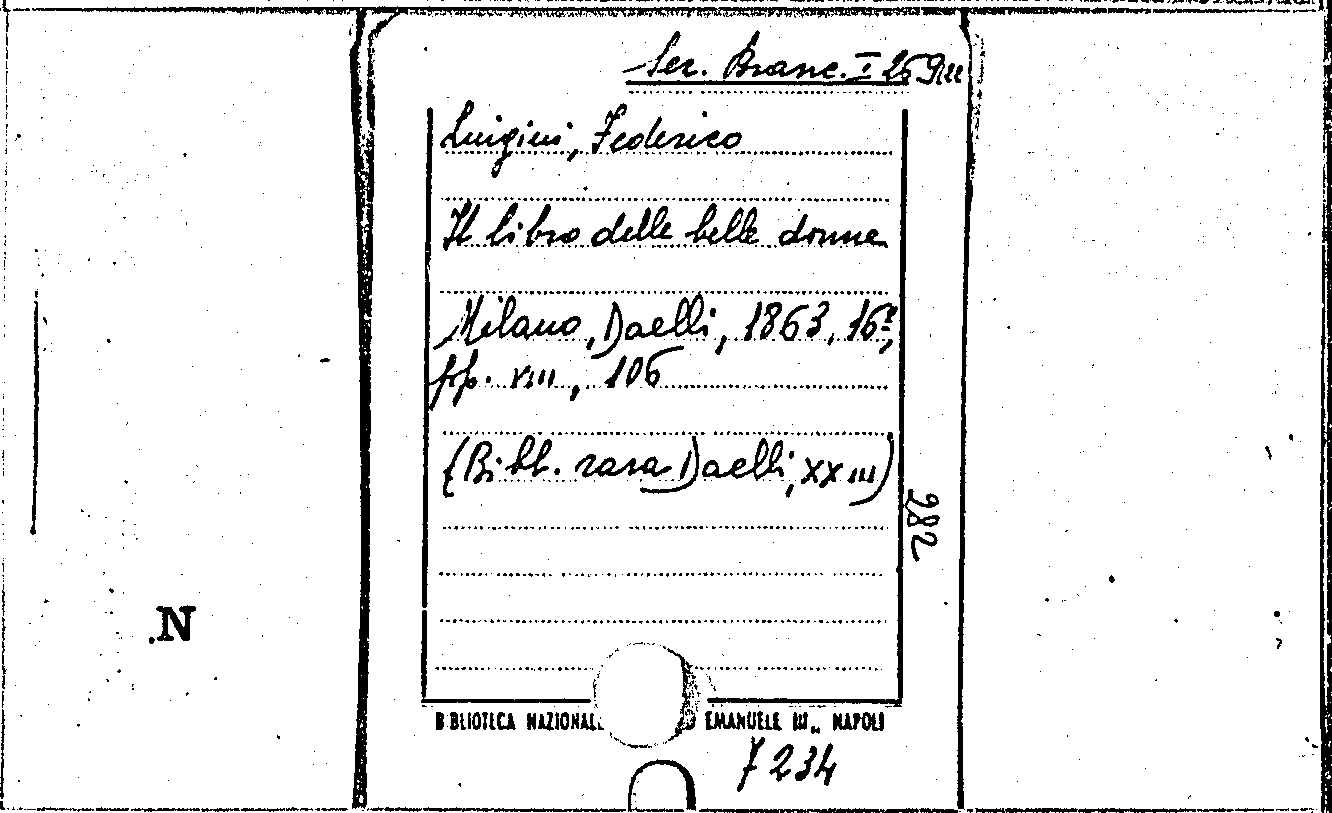 Sez. Branc. I 25 9
Luigini, Federico
Il libro delle belle donne
Milano, Daelli, 1863, 16º,
pp. VIII, 106
(Bibl. rara Daelli, XXIII)
282
N
BIBLIOTECA NAZIONALE EMANUELE III„ NAPOLI
7234